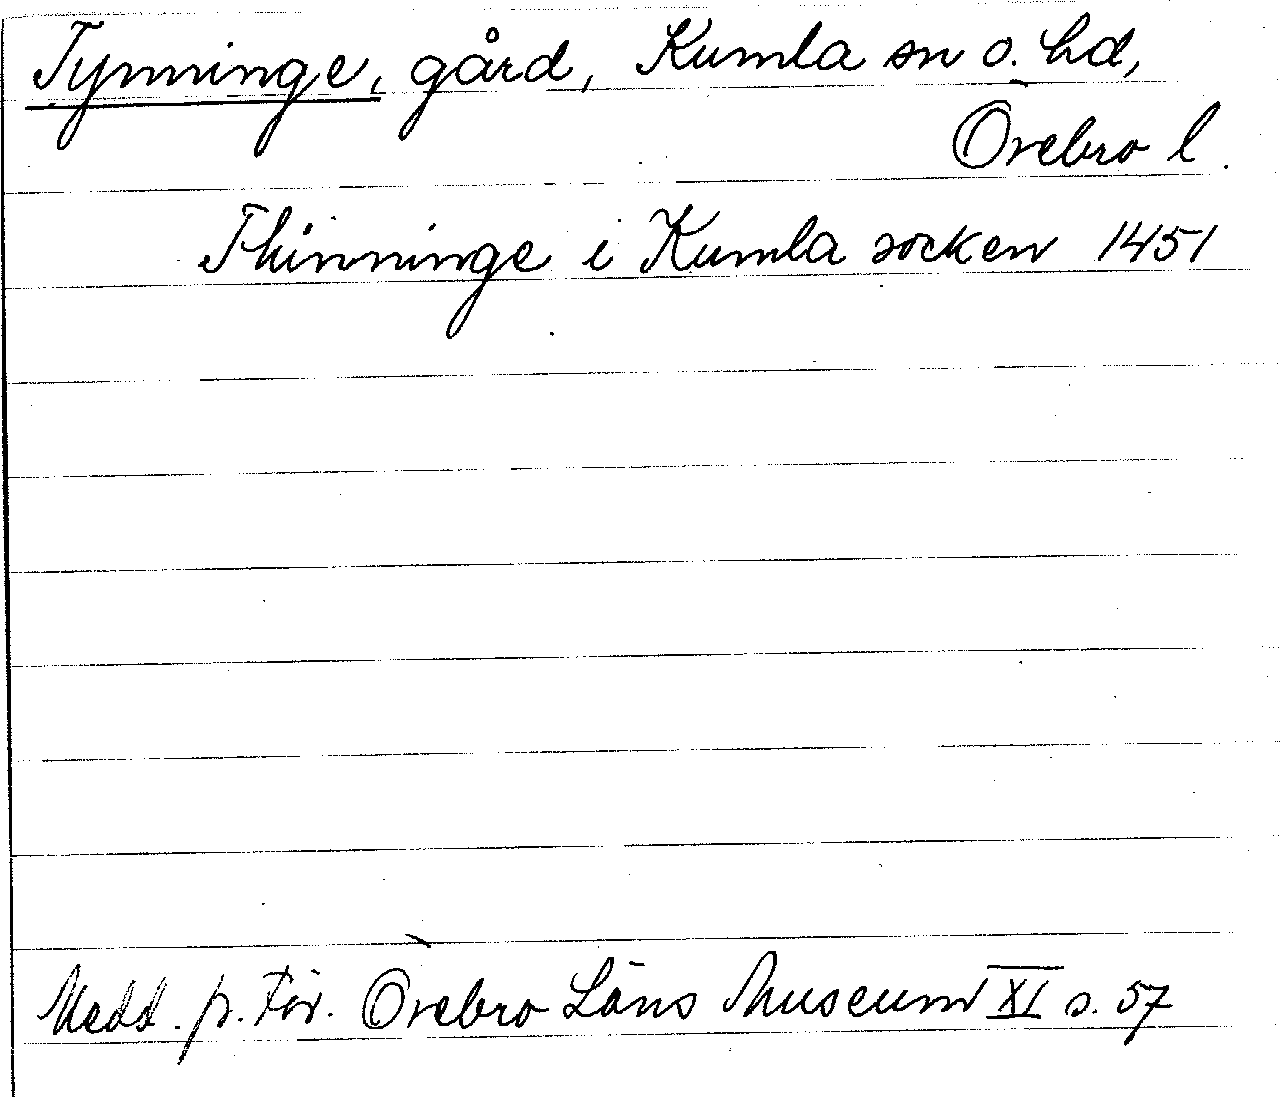 Tynninge, gård, Kumla sn o. hd,
Örebro l.
Thinninge i Kumla socken 1451
Medd. fr. För. Örebro Läns Museum XI s. 57